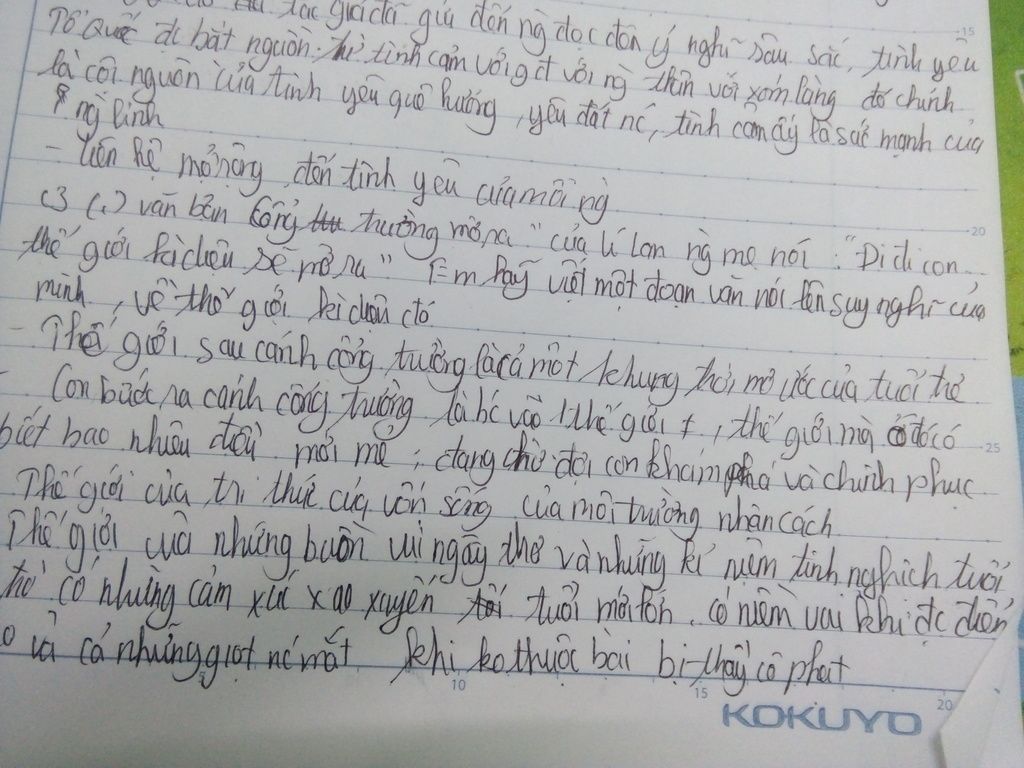 tác giả đã gửi đến ng đọc đọn ý nghĩ sâu sắc, tình yêu
Tổ Quốc đc bắt nguồn từ tình cảm với gđ với ng thân với xóm làng đó chính
là cội nguồn của tình yêu quê hương, yêu đất nc, tình cảm ấy là sức mạnh của
ng lính
- Liên hệ mở rộng đến tình yêu của mỗi ng
C3 (.) văn bản Cổng trường mở ra " của Lí Lan ng mẹ nói : "Đi đi con
thế giới kì diệu sẽ mở ra" Em hãy viết một đoạn văn nói lên suy nghĩ của
mình, về thế giới kì diệu đó
- Thế giới sau cánh cổng trường là cả một khung trời mơ ước của tuổi thơ
- Con bước ra cánh cổng trường là bc vào 1 thế giới ≠, thế giới mà ở đó có
biết bao nhiêu điều mới mẻ, đang chờ đợi con khám phá và chinh phục
Thế giới của tri thức của vốn sống của môi trường nhân cách
Thế giới của những buồn vui ngây thơ và những kỉ niệm tinh nghịch tuổi
thơ có những cảm xúc xao xuyến tuổi mới lớn. có niềm vui khi đc điểm
và cả những giọt nc mắt khi ko thuộc bài bị thầy cô phạt
15
20
25
10
15
20
KOKUYO